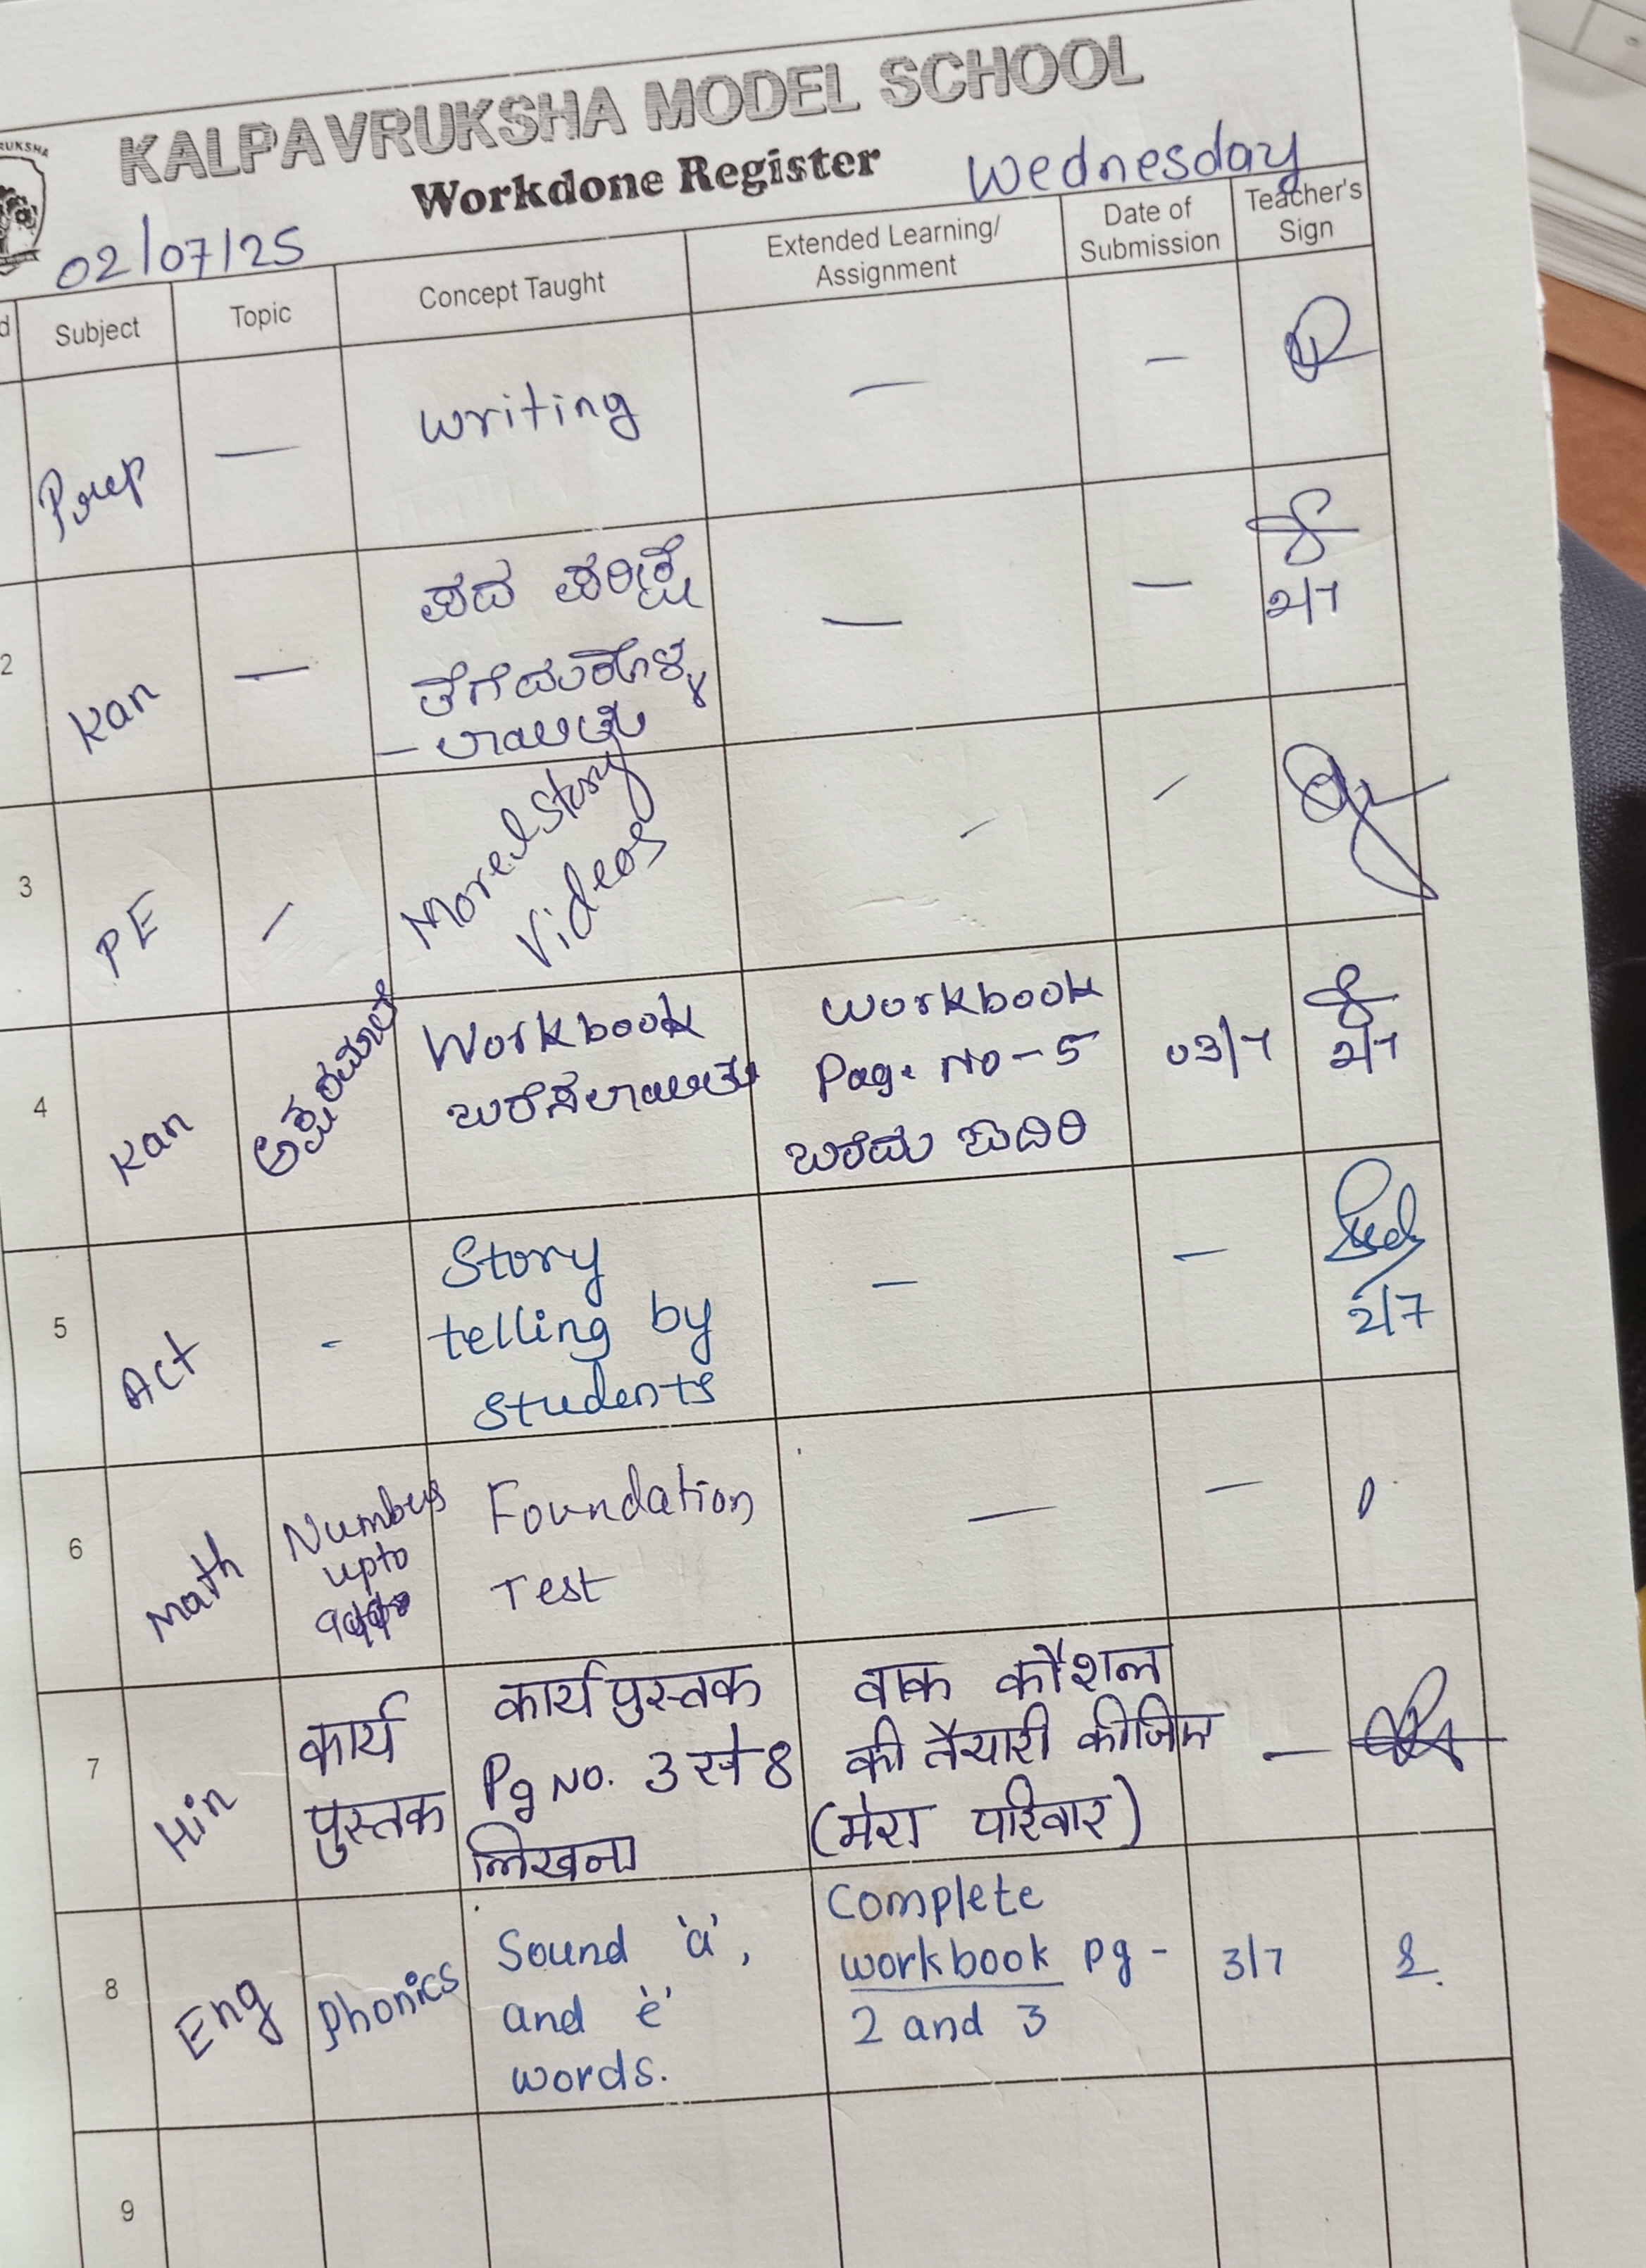 KALPAVRUKSHA MODEL SCHOOL
Workdone Register
Wednesday
02/07/25
Subject
Topic
Concept Taught
Extended Learning/
Assignment
Date of
Submission
Teacher's
Sign
Prep
—
writing
—
—
2
Kan
—
ಪದ ಪರೀಕ್ಷೆ
ತೆಗೆದುಕೊಳ್ಳ
- ಲಾಯಿತು
—
—
2/7
3
PE
—
Moral Story
Videos
—
—
4
Kan
ಅಕ್ಷರಮಾಲೆ
Workbook
ಬರೆಸಲಾಯಿತು
Workbook
Page No - 5
ಬರೆದು ತನ್ನಿರಿ
03/7
2/7
5
Act
-
Story
telling by
students
—
—
2/7
6
Math
Numbers
upto
Foundation
Test
—
—
7
Hin
कार्य
पुस्तक
कार्य पुस्तक
Pg No. 3 से 8
लिखना
वाक कौशल
की तैयारी कीजिए
(मेरा परिवार)
—
8
Eng
Phonics
Sound 'a',
and 'e'
words.
Complete
workbook pg -
2 and 3
3/7
9